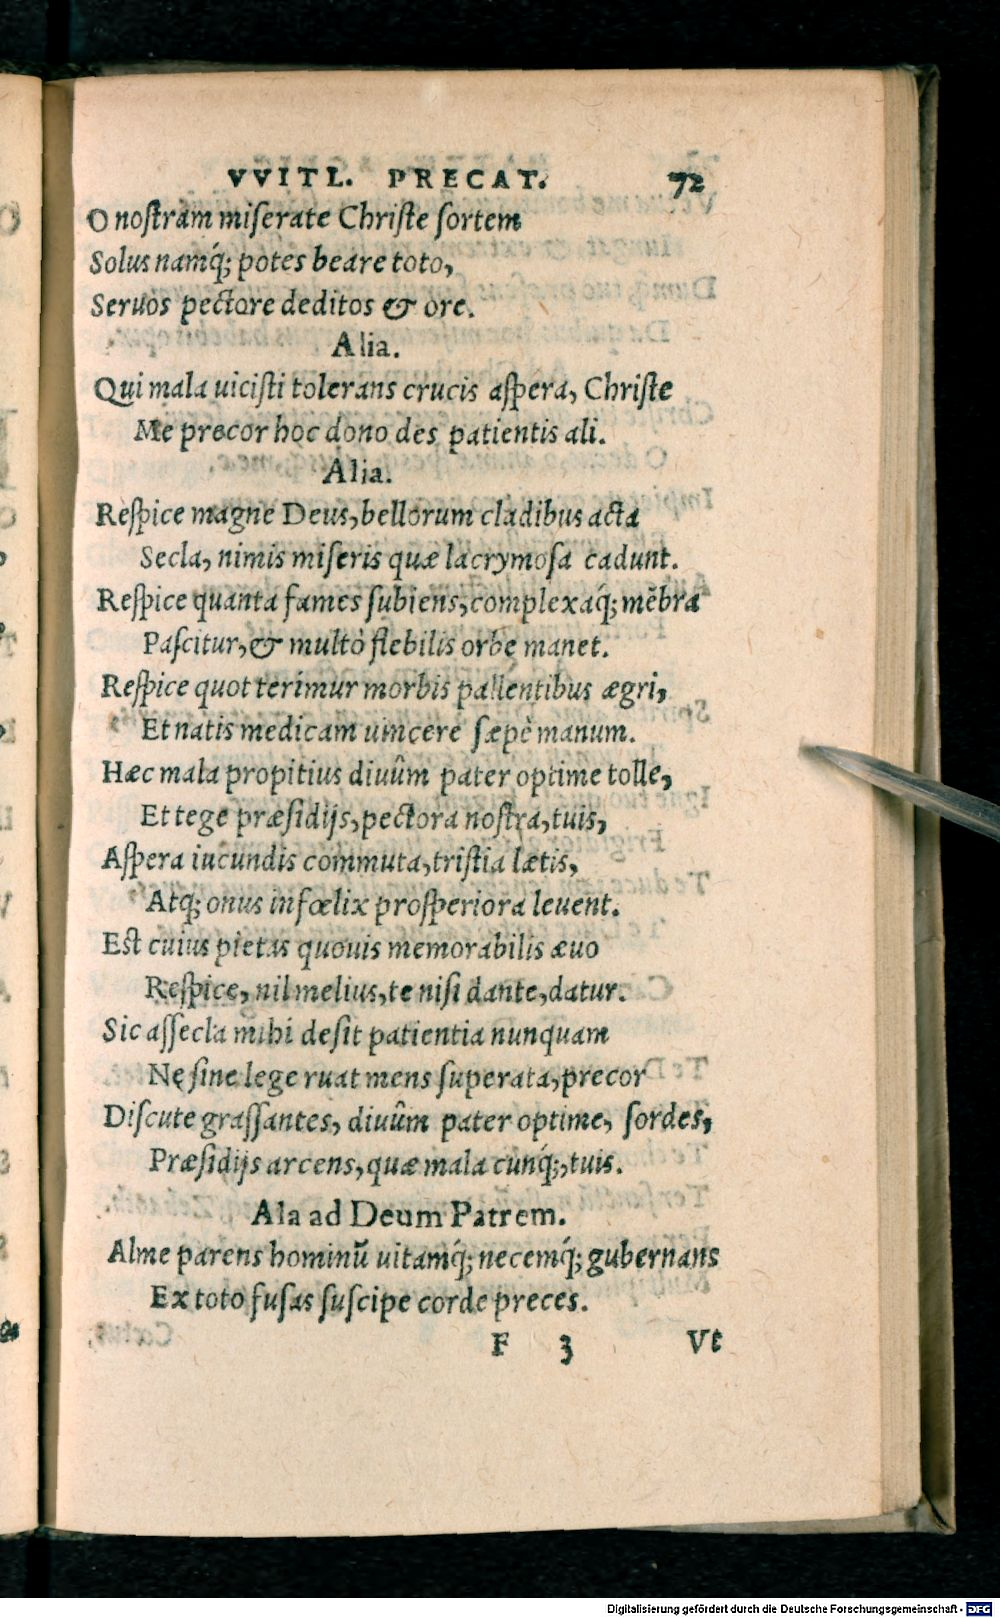 VVITL. PRECAT. 72
O nostram miserate Christe sortem
Solus namq́; potes beare toto,
Seruos pectore deditos & ore.
Alia.
Qui mala uicisti tolerans crucis aspera, Christe
Me precor hoc dono des patientis ali.
Alia.
Respice magne Deus, bellorum cladibus acta
Secla, nimis miseris quæ lacrymosa cadunt.
Respice quanta fames subiens, complexaq́; mẽbra
Pascitur, & multò flebilis orbe manet.
Respice quot terimur morbis pallentibus ægri,
Et natis medicam uincere sæpè manum.
Hæc mala propitius diuûm pater optime tolle,
Et tege præsidijs, pectora nostra, tuis,
Aspera iucundis commuta, tristia lætis,
Atq; onus infœlix prosperiora leuent.
Est cuius pietas quouis memorabilis æuo
Respice, nil melius, te nisi dante, datur.
Sic assecla mihi desit patientia nunquam
Nę sine lege ruat mens superata, precor
Discute grassantes, diuûm pater optime, sordes,
Præsidijs arcens, quæ mala cunq́;, tuis.
Ala ad Deum Patrem.
Alme parens hominũ uitamq́; necemq́; gubernans
Ex toto fusas suscipe corde preces.
F 3 Vt
Digitalisierung gefördert durch die Deutsche Forschungsgemeinschaft - DFG